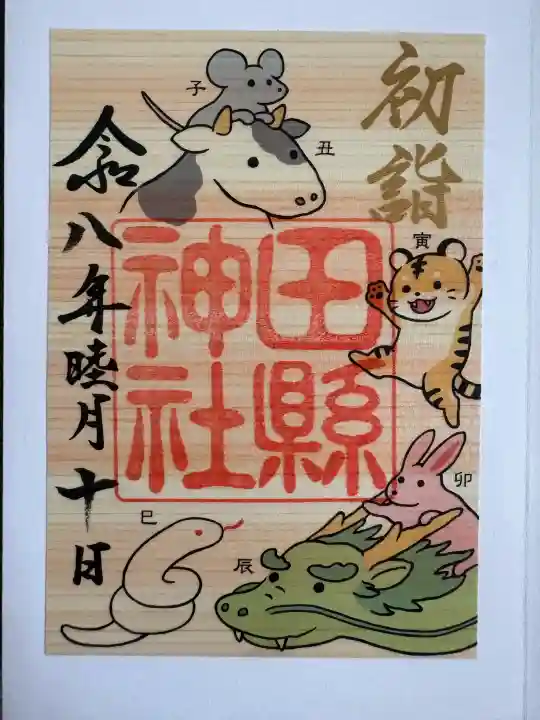 初詣
子
丑
寅
田縣
神社
卯
辰
巳
令和八年睦月十日